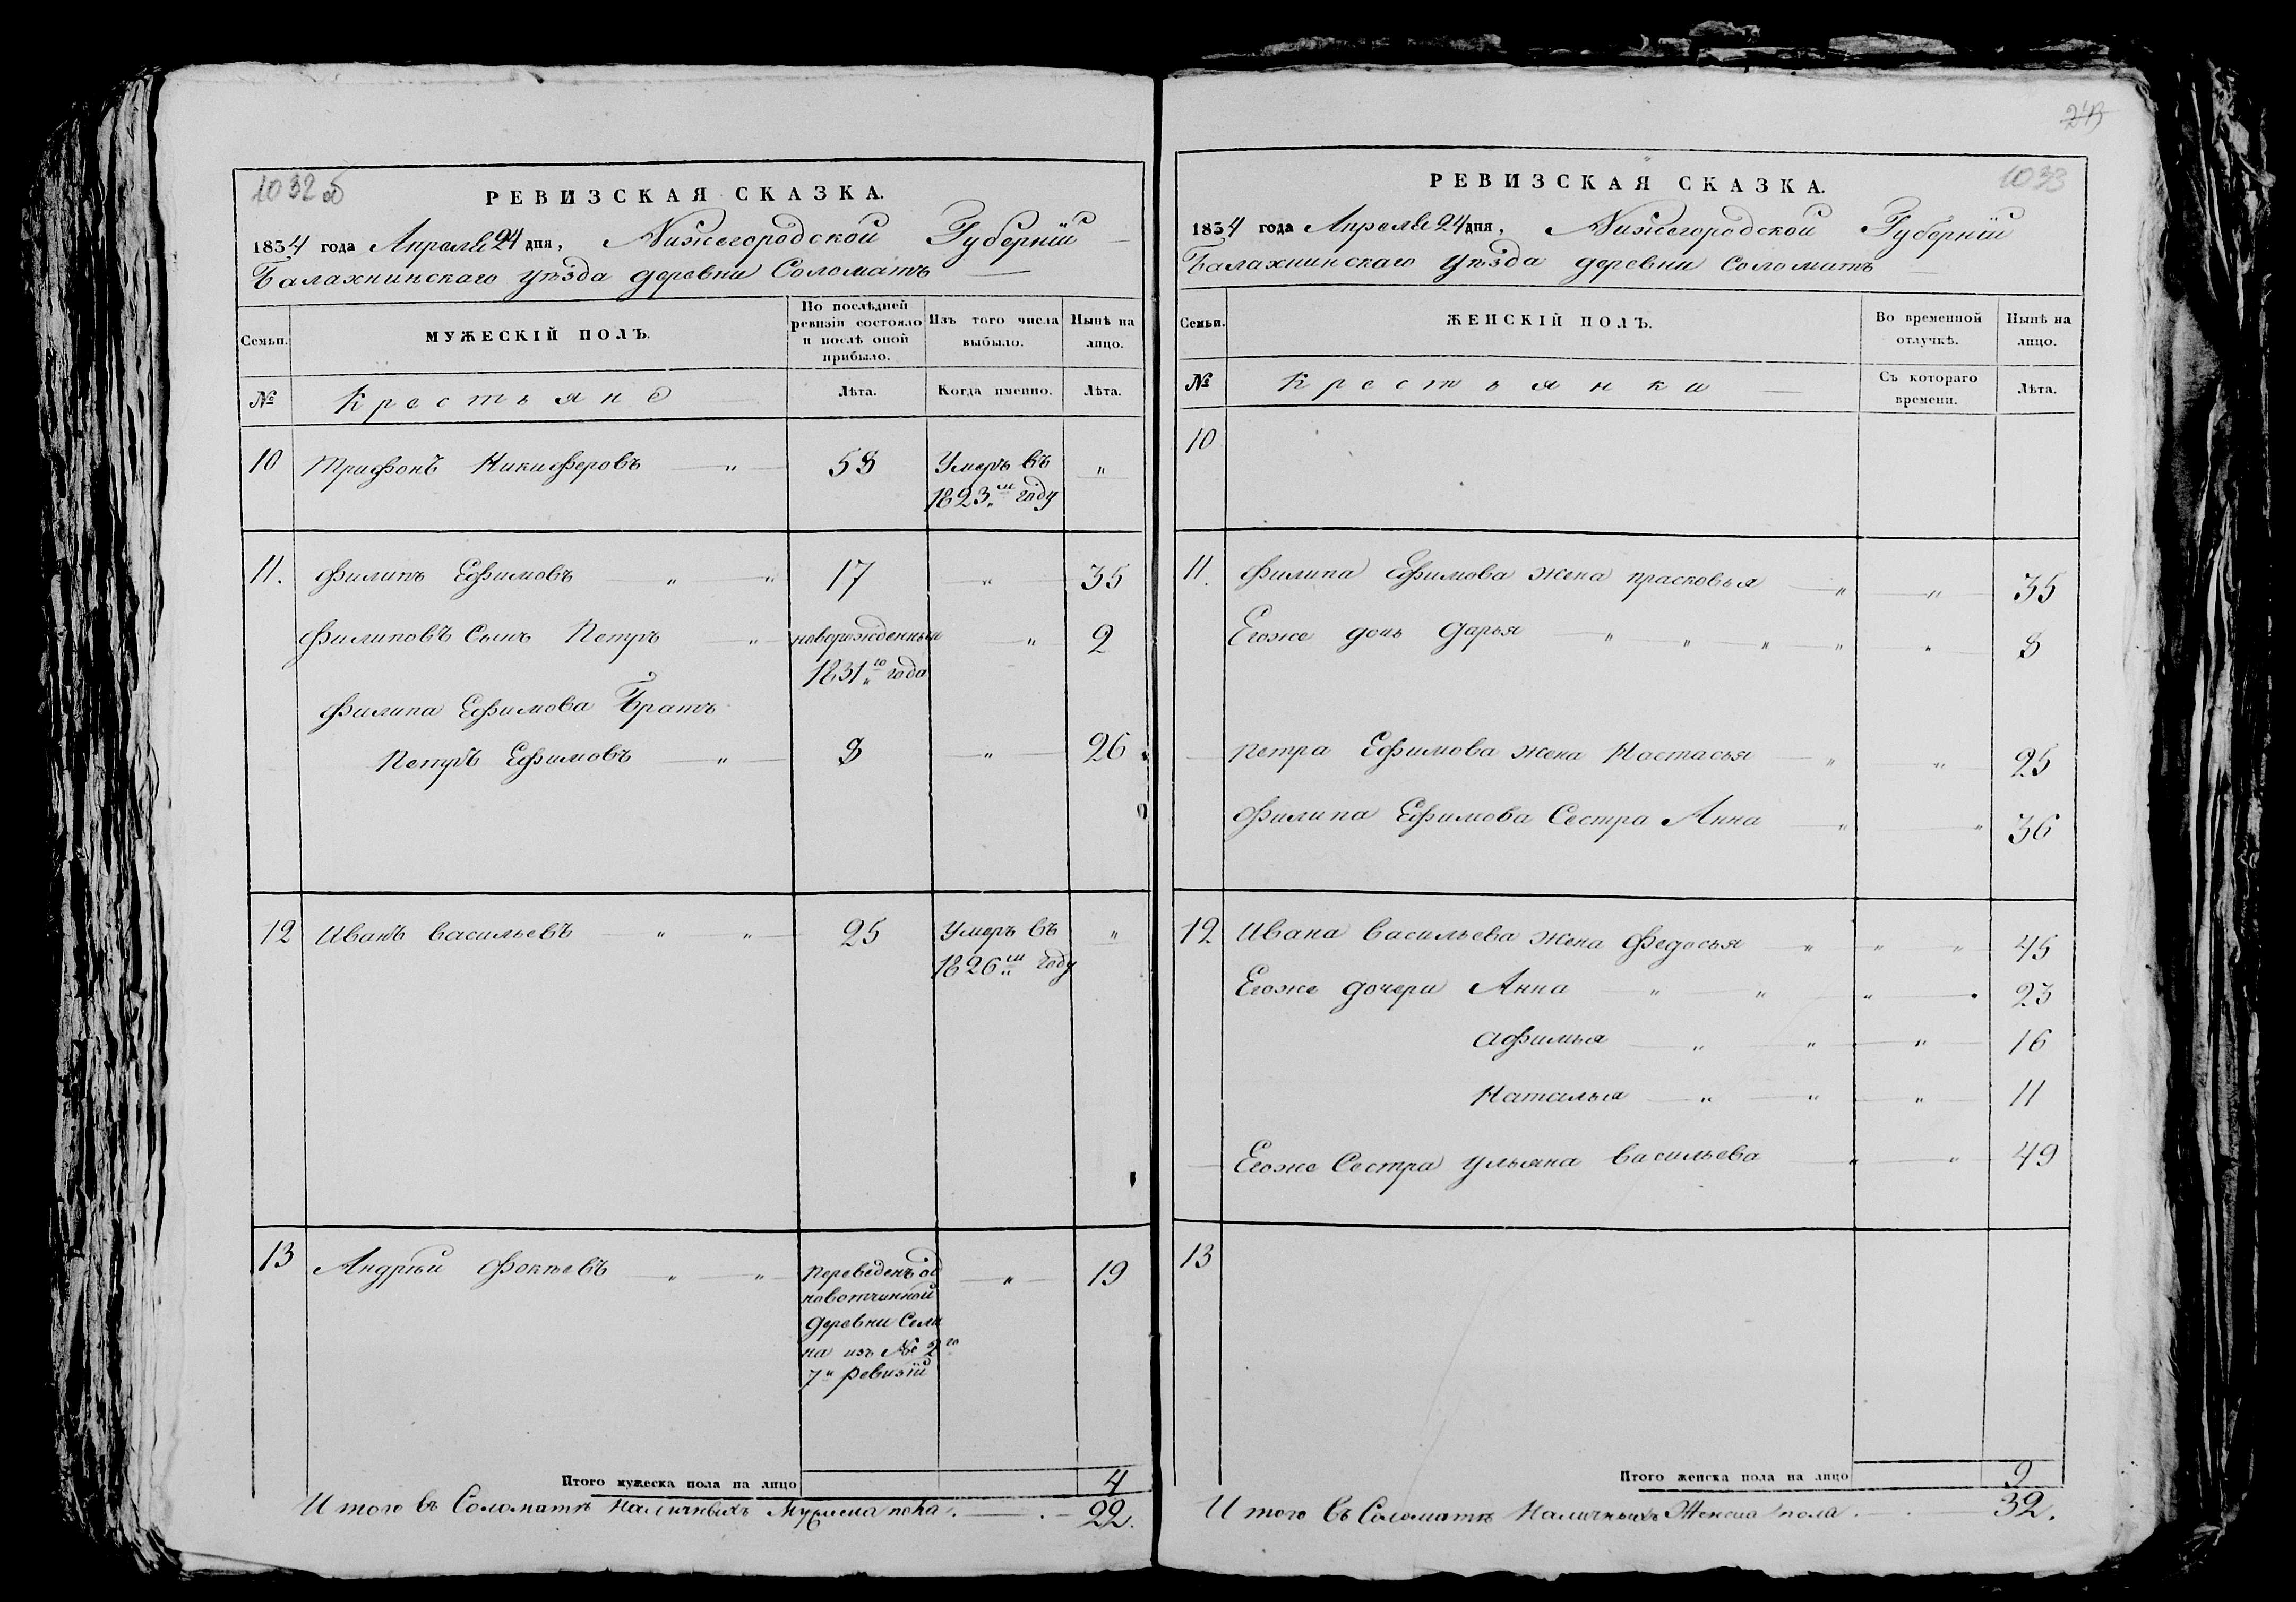 1032 об
РЕВИЗСКАЯ СКАЗКА.
1834 года Апреля 24 дня, Нижегородской Губерніи
Балахнинскаго уѣзда деревни Соломатъ
Семьи.
МУЖЕСКІЙ ПОЛЪ.
По послѣдней ревизіи состояло и послѣ оной прибыло.
Изъ того числа выбыло.
Нынѣ на лицо.
№
Крестьяне
Лѣта.
Когда именно.
Лѣта.
10 Трифонъ Никиферовъ " 58 Умеръ въ "
1823м году
11. Филипъ Ефимовъ " " 17 " 35
Филиповъ Сынъ Петръ " новорожденный " 2
1831го года
Филипа Ефимова Братъ
Петръ Ефимовъ " 8 " 26
12 Иванъ васильевъ " " 25 Умеръ въ "
1826м году
13 Андрей Фокеевъ " " Переведенъ од " 19
новотчинной
деревни Сели
на изъ № 2го
7й ревизіи
Итого мужеска пола на лицо 4
Итого въ Соломатѣ Наличныхъ Мужеска пола . 22.
1033
РЕВИЗСКАЯ СКАЗКА.
1834 года Апреля 24 дня, Нижегородской Губерніи
Балахнинскаго уѣзда деревни Соломатъ
Семьи.
ЖЕНСКІЙ ПОЛЪ.
Во временной отлучкѣ.
Нынѣ на лицо.
№
Крестьянки
Съ котораго времени.
Лѣта.
10
11. Филипа Ефимова жена прасковья " " 35
Егоже дочь Дарья " " " " " 8
Петра Ефимова жена Настасья " " 25
Филипа Ефимова Сестра Анна " " 36
12 Ивана васильева жена Федосья " " " 45
Егоже дочери Анна " " " 23
Афимья " " " 16
Наталья " " " 11
Егоже Сестра ульяна васильева " " 49
13
Итого женска пола на лицо 9
Итого въ Соломатѣ Наличныхъ Женска пола . 32.